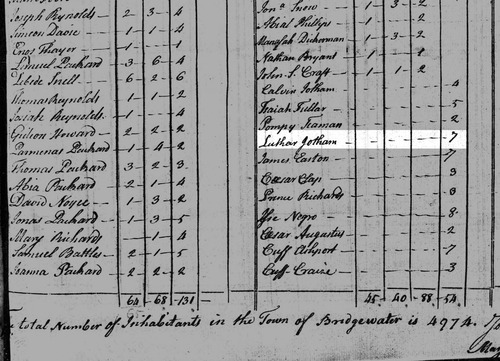 Joseph Reynolds - 2 - 3 - 4
Simeon Davie - 1 - 1 - 4
Enos Thayer - 1 - 1
Lemuel Packard - 3 - 6 - 4
Snell - 6 - 2 - 6
Thomas Reynolds 1 - 1 - 2
Josiah Reynolds 1 - 1 - 4
Howard - 2 - 2 - 2
Parmenas Packard - 1 - 4 - 2
Thomas Packard - 3 - 2 - 3
Abia Packard - 2 - 1 - 4
David Noyce - 1 - 3 - 2
Jonas Packard - 1 - 3 - 5
Mary Richards - - 1 - 4
Samuel Battles - 2 - 1 - 5
Packard - 2 - 2 - 2
64 - 68 - 131
Jona Snow - 1 - 3 - 2
Abial Phillips - 1 - - 2
Dickerman - 1 - 3 - 2
Nathan Bryant - 1 - - 1
John S. Craft - 1 - 1 - 2
Calvin Jotham - 4
Isaiah Fuller - 5
Pompy Seaman - 2
Luther Jotham - 7
James Easton - 7
Cæsar Clap - 3
Prince Richards - 3
Negro - 8
Cæsar Augustus - 2
Cuff Ashport - 7
Cuff Craise - 3
45 - 40 - 88 - 54
total Number of Inhabitants in the Town of Bridgewater is 4974.